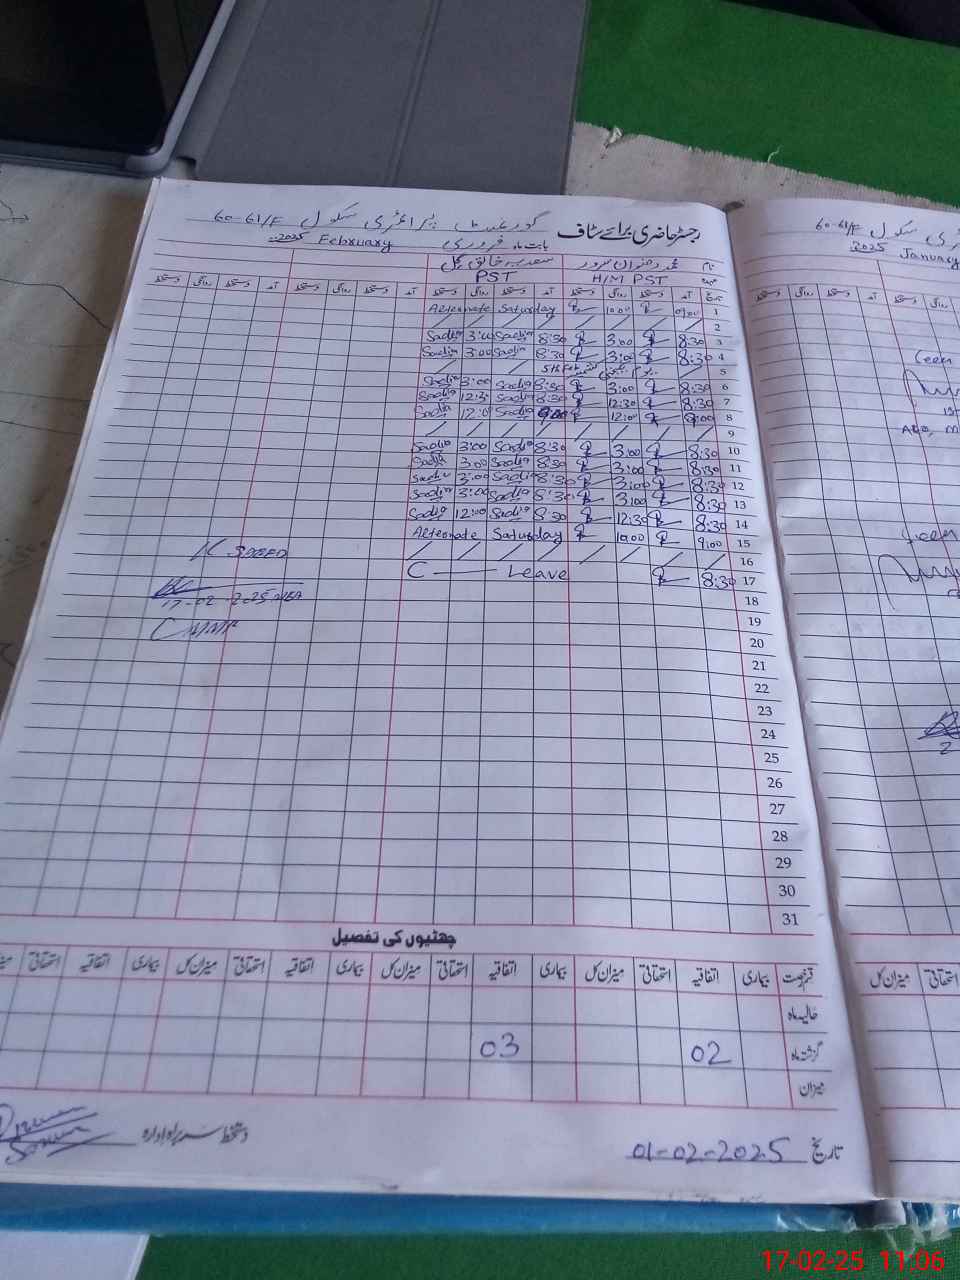 رجسٹر حاضری برائے سٹاف گورنمنٹ پرائمری سکول 60-61/F
بابت ماہ فروری February 2025
نام محمد رضوان سرور سعدیہ خالق گل
عہدہ H/M PST PST
تاریخ آمد دستخط روانگی دستخط آمد دستخط روانگی دستخط آمد دستخط روانگی دستخط آمد دستخط روانگی دستخط
1 09:00 10:00 Alternate Saturday
2
3 8:30 3:00 8:30 Sadia 3:00 Sadia
4 8:30 3:00 8:30 Sadia 3:00 Sadia
5 5th Feb یوم کشمیر
6 8:30 3:00 8:30 Sadia 3:00 Sadia
7 8:30 12:30 8:30 Sadia 12:3 Sadia
8 9:00 12:00 9:00 Sadia 12:0 Sadia
9
10 8:30 3:00 8:30 Sadia 3:00 Sadia
11 8:30 3:00 8:30 Sadia 3:00 Sadia
12 8:30 3:00 8:30 Sadia 3:00 Sadia
13 8:30 3:00 8:30 Sadia 3:00 Sadia
14 8:30 12:30 8:30 Sadia 12:00 Sadia
15 9:00 10:00 Alternate Saturday
16
17 8:30 C — Leave
17-02-2025
18
19
20
21
22
23
24
25
26
27
28
29
30
31
چھٹیوں کی تفصیل
قسم رخصت بیماری اتفاقیہ استحقاقی میزان کل بیماری اتفاقیہ استحقاقی میزان کل بیماری اتفاقیہ استحقاقی میزان کل بیماری اتفاقیہ استحقاقی
حالیہ ماہ
گزشتہ ماہ 02 03
میزان
تاریخ 01-02-2025 دستخط سربراہ ادارہ
60-61/F
2025 January
دستخط روانگی دستخط آمد
استحقاقی میزان کل
17-02-25 11:06